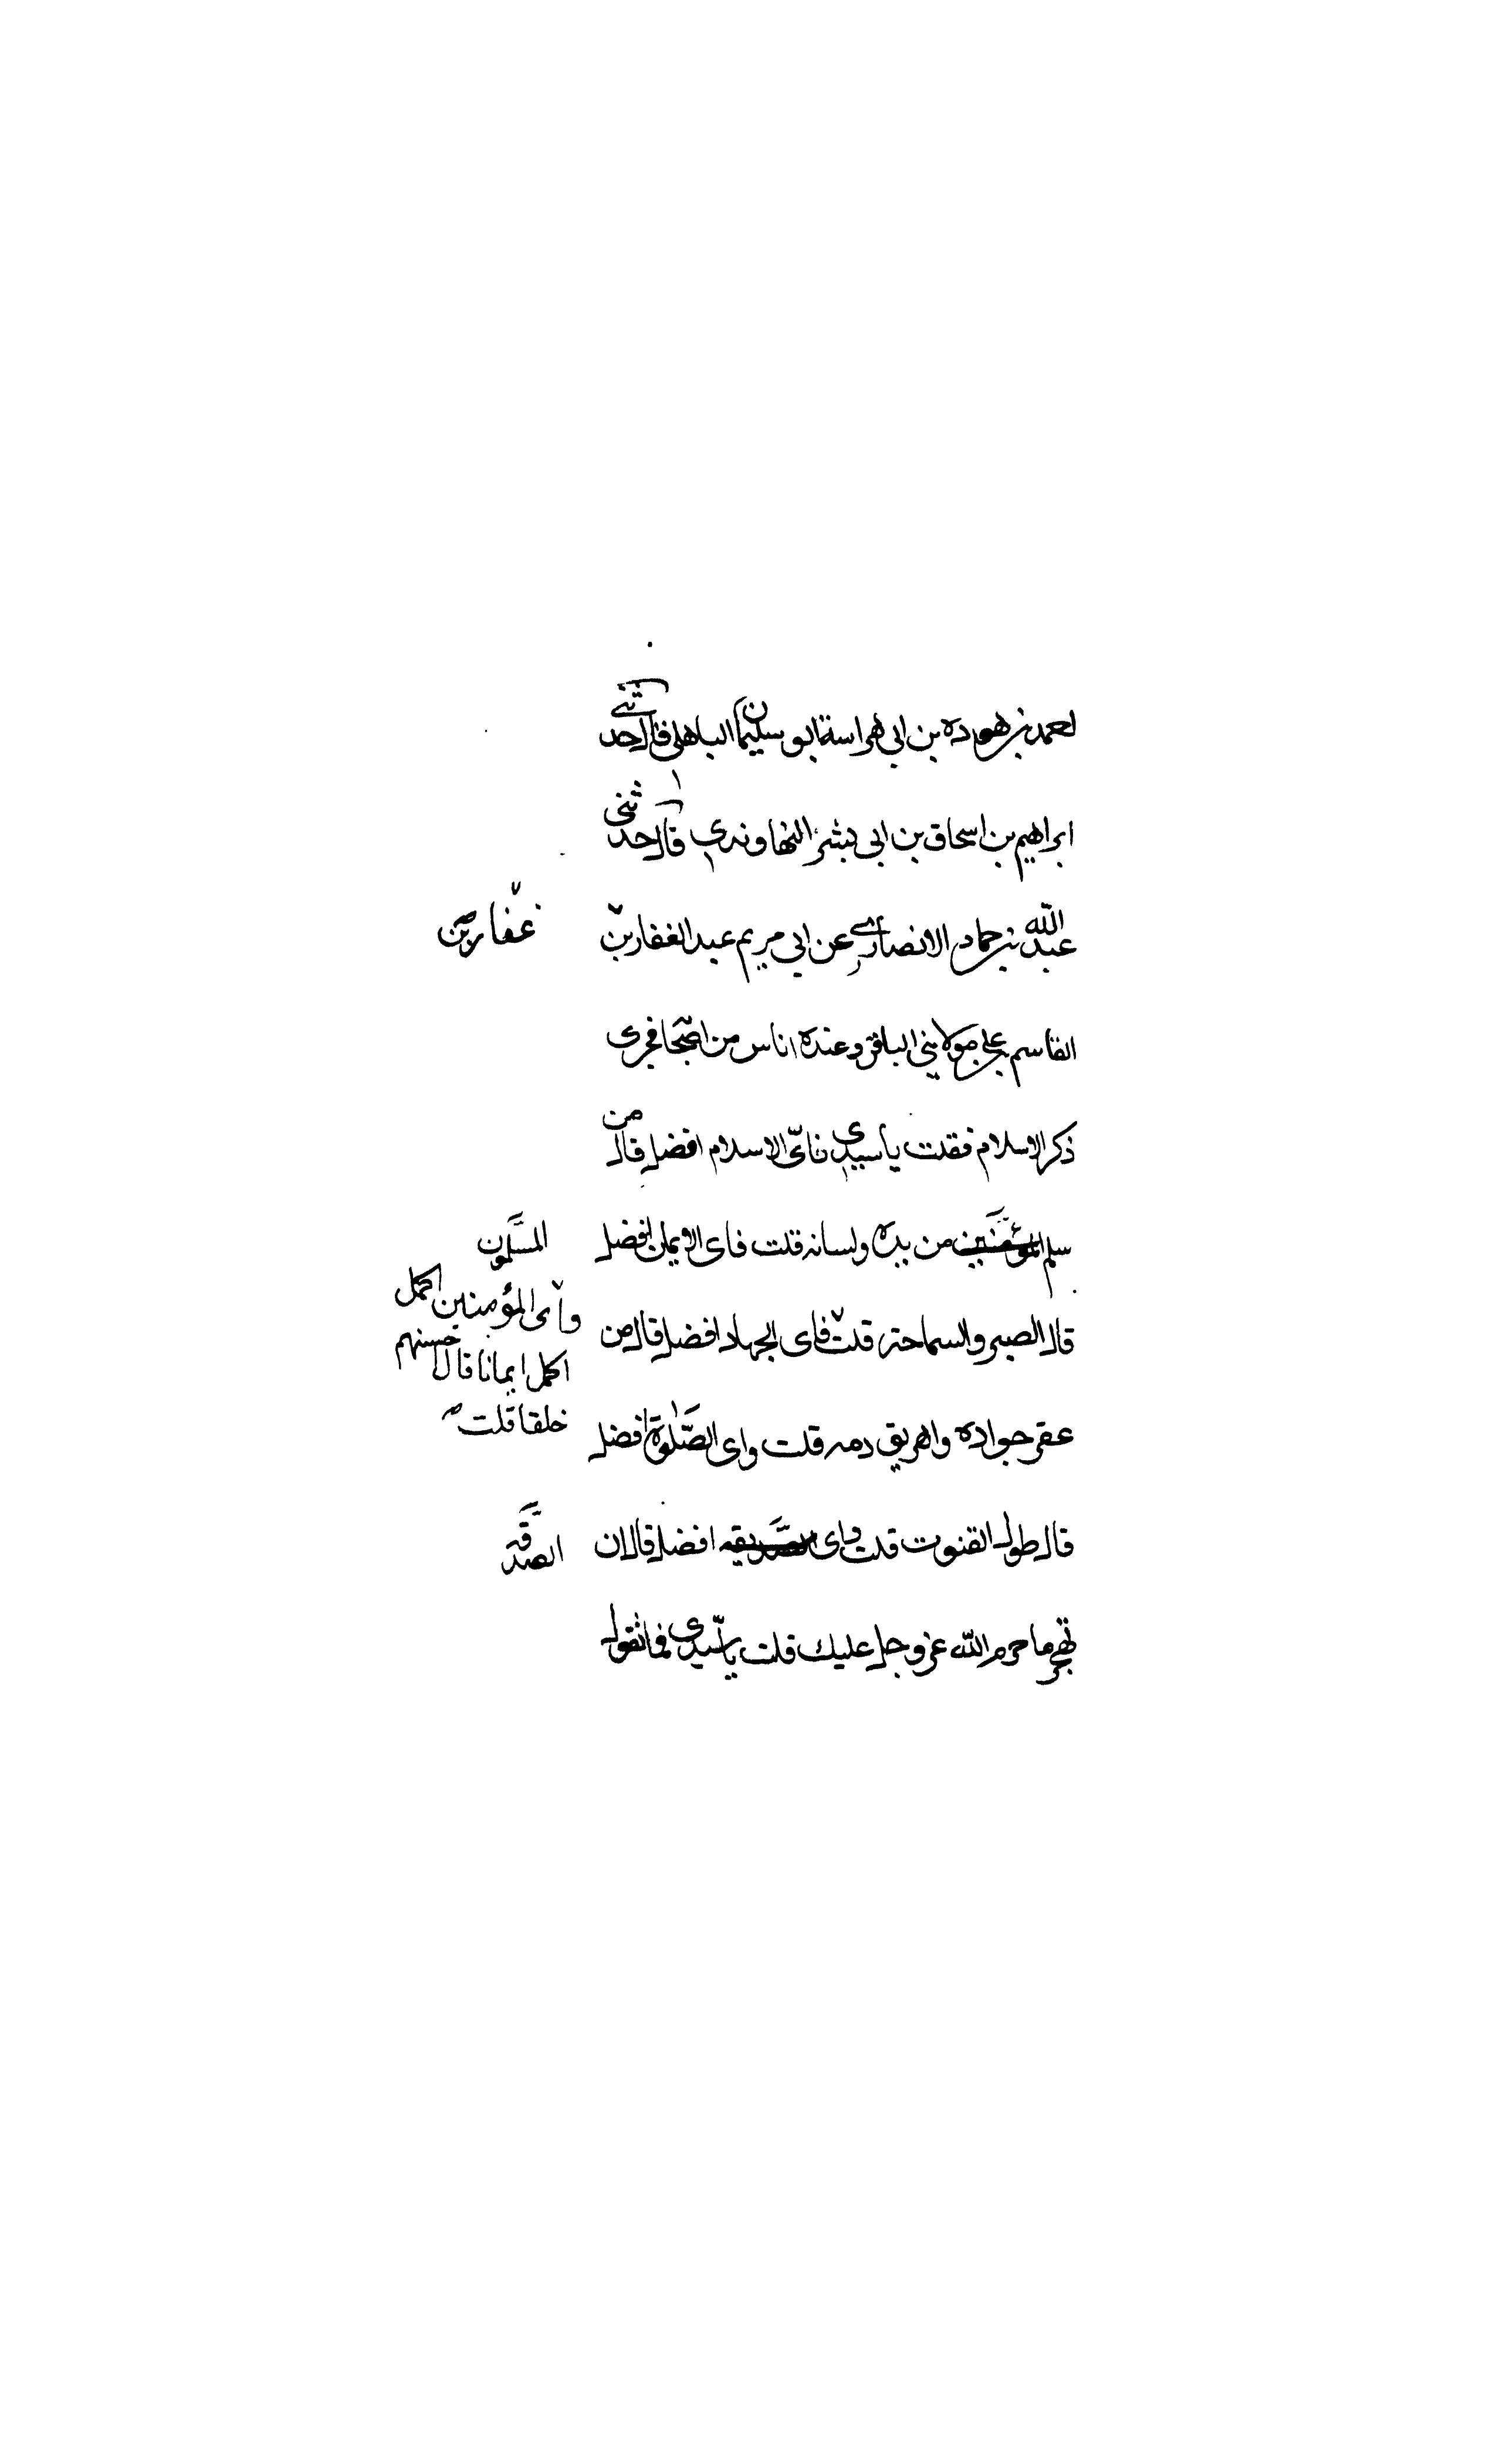 احمد بن هوده بن ابي هراسة ابو سليمان الباهلى قال حدثنى
ابراهيم بن اسحاق بن ابي بشر النهاوندي قال حدثنى
عبدالله بن حماد الانصاري عن ابي مريم عبد الغفار بن
غفار بن
القاسم على مولاى الباقر وعنده اناس من اصحا فجرى
ذكر الاسلام فقلت يا سيدي فاىّ الاسلام افضل قال من
سلم المؤمنين من يده ولسانه قلت فاى الايمان افضل
المسلمون
قال الصبر والسماحة قلت فاى الجهاد افضل قال من
واى المؤمنين اكمل
اكمل ايمانا قال احسنهم
خلقا قلت
عقر جواده واهريق دمه قلت واى الصّلوة افضل
قال طول القنوت قلت واى افضل قال ان
الصدقة
تهجر ما حرم الله عز وجل عليك قلت يا سيدى فما تقول